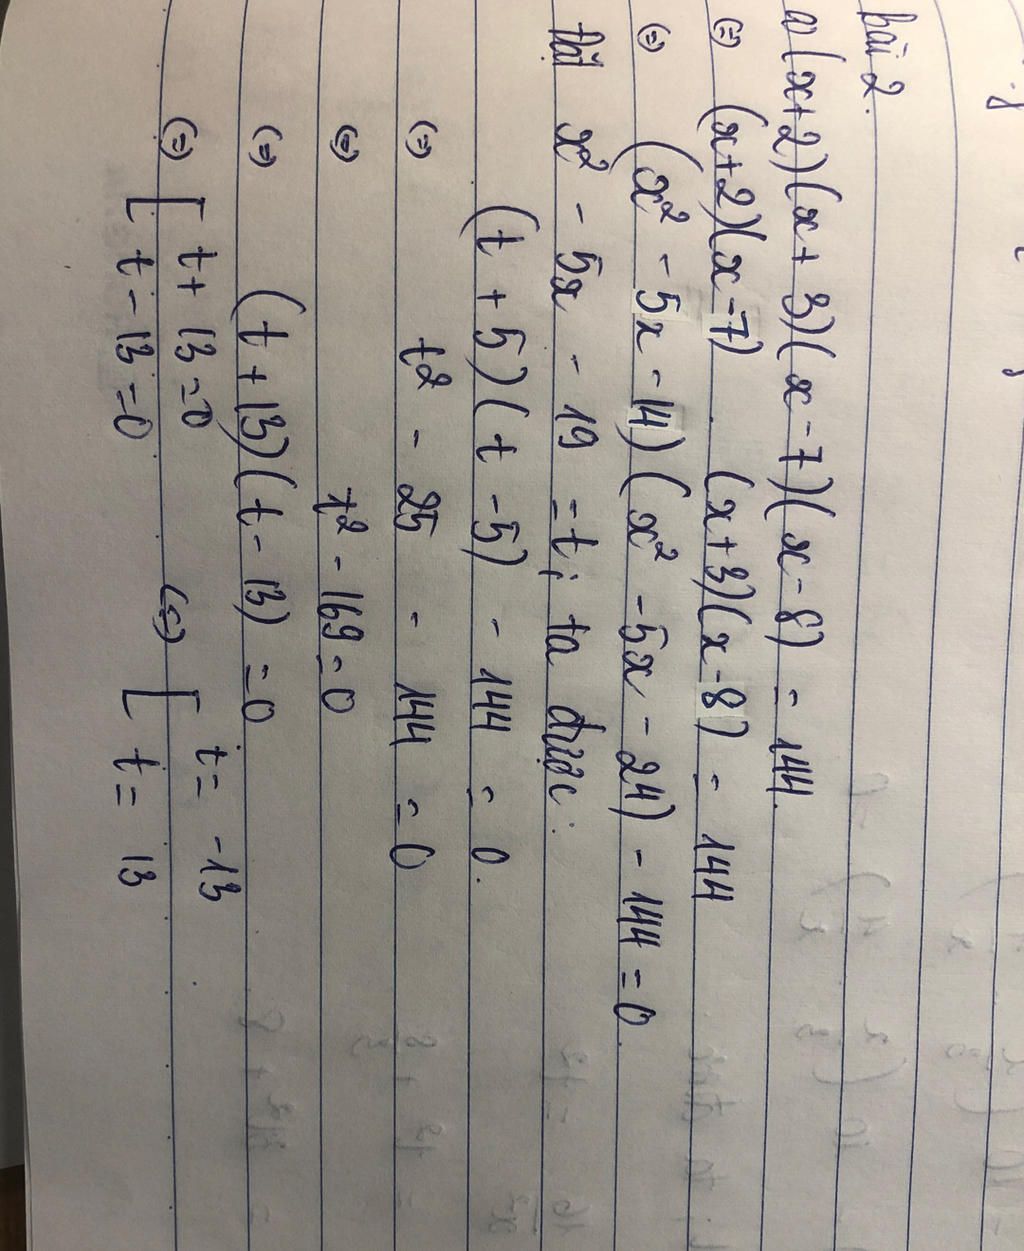 bài 2.
a) (x+2)(x+3)(x-7)(x-8) = 144.
(=) (x+2)(x-7) (x+3)(x-8) = 144
(=) (x² - 5x - 14)(x² - 5x - 24) - 144 = 0.
đặt x² - 5x - 19 = t; ta được:
(t + 5)(t - 5) - 144 = 0.
(=) t² - 25 - 144 = 0
(=) t² - 169 = 0
(=) (t + 13)(t - 13) = 0
(=) [ t + 13 = 0 (=) [ t = -13
t - 13 = 0 t = 13